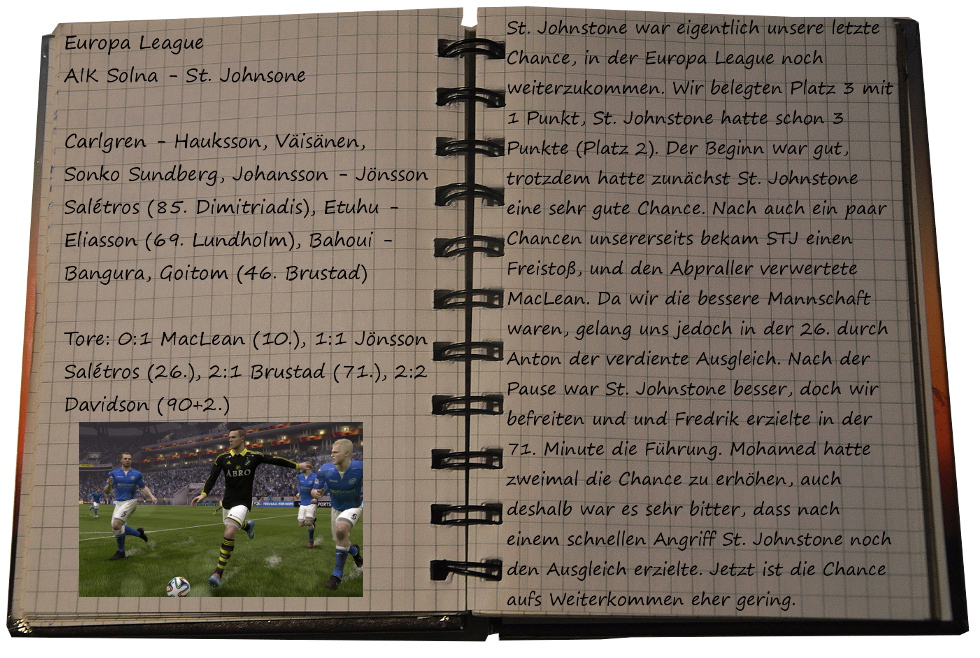 Europa League
AIK Solna - St. Johnsone
Carlgren - Hauksson, Väisänen,
Sonko Sundberg, Johansson - Jönsson
Salétros (85. Dimitriadis), Etuhu -
Eliasson (69. Lundholm), Bahoui -
Bangura, Goitom (46. Brustad)
Tore: 0:1 MacLean (10.), 1:1 Jönsson
Salétros (26.), 2:1 Brustad (71.), 2:2
Davidson (90+2.)
ABRO
St. Johnstone war eigentlich unsere letzte
Chance, in der Europa League noch
weiterzukommen. Wir belegten Platz 3 mit
1 Punkt, St. Johnstone hatte schon 3
Punkte (Platz 2). Der Beginn war gut,
trotzdem hatte zunächst St. Johnstone
eine sehr gute Chance. Nach auch ein paar
Chancen unsererseits bekam STJ einen
Freistoß, und den Abpraller verwertete
MacLean. Da wir die bessere Mannschaft
waren, gelang uns jedoch in der 26. durch
Anton der verdiente Ausgleich. Nach der
Pause war St. Johnstone besser, doch wir
befreiten und und Fredrik erzielte in der
71. Minute die Führung. Mohamed hatte
zweimal die Chance zu erhöhen, auch
deshalb war es sehr bitter, dass nach
einem schnellen Angriff St. Johnstone noch
den Ausgleich erzielte. Jetzt ist die Chance
aufs Weiterkommen eher gering.